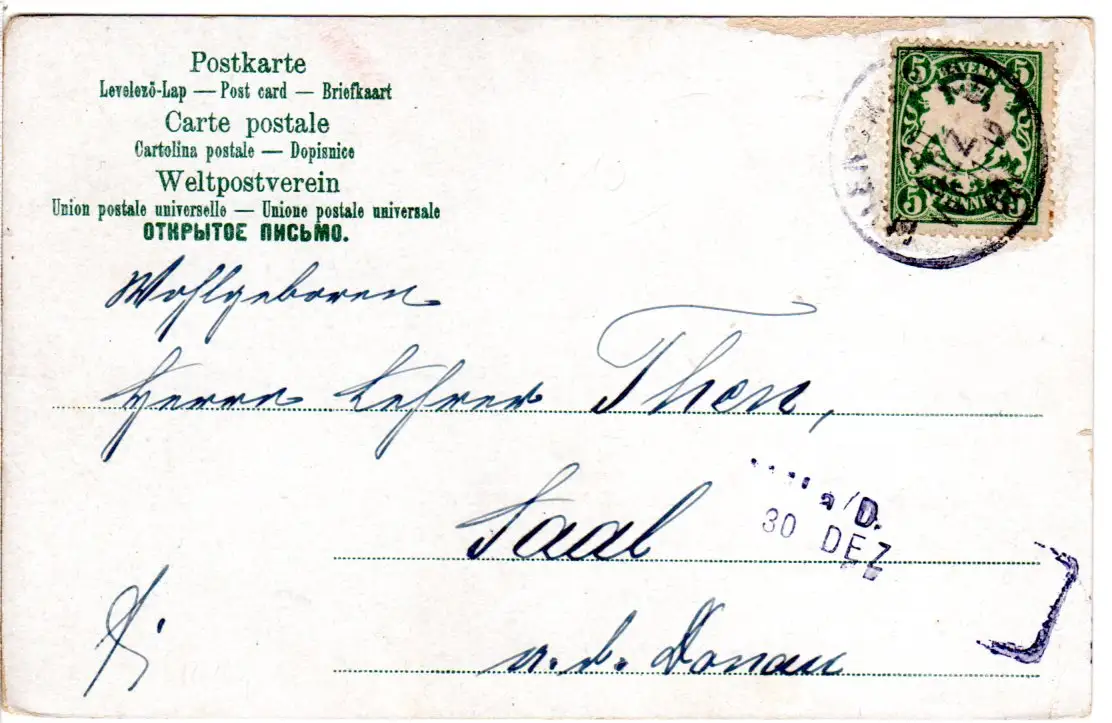 Postkarte
Levelező-Lap — Post card — Briefkaart
Carte postale
Cartolina postale — Dopisnice
Weltpostverein
Union postale universelle — Unione postale universale
ОТКРЫТОЕ ПИСЬМО.
5 BAYERN 5
5 PFENNIG 5
Wohlgeboren
Herrn Lehrer Then,
Saal
a/D.
30 DEZ
a. d. Donau